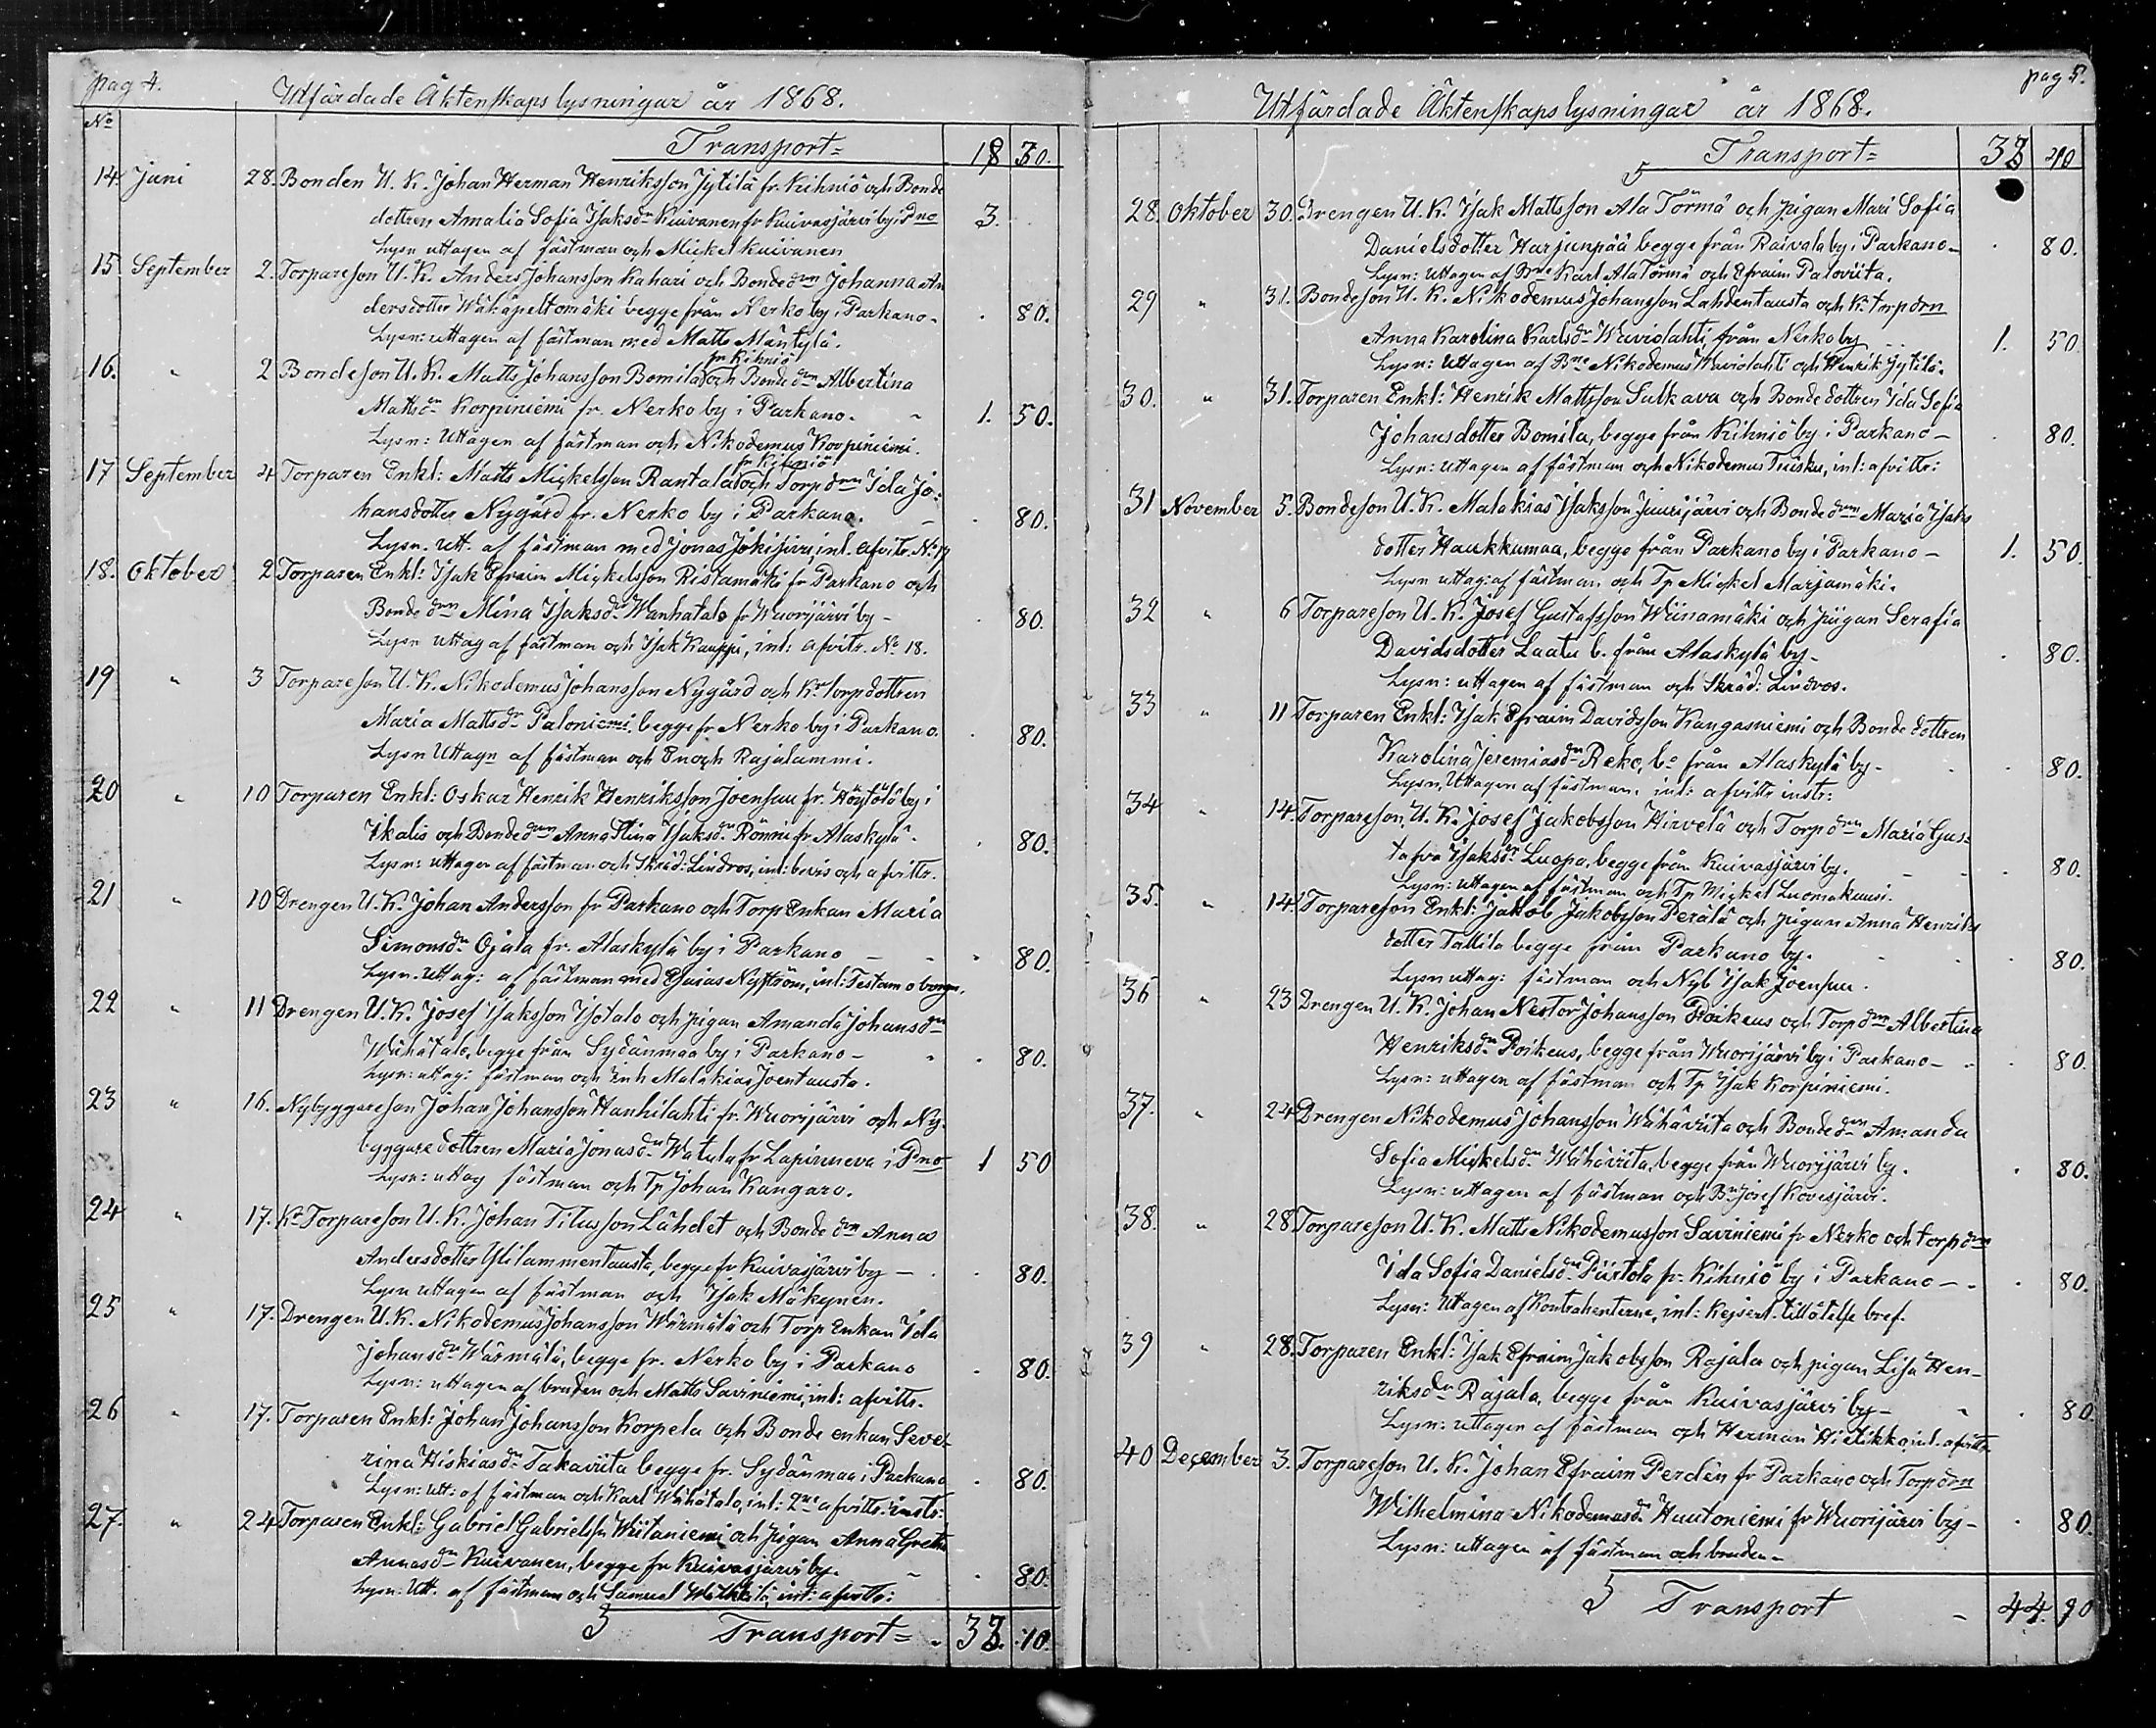 pag 4.
Utfärdade Äktenskaps lysningar år 1868.
No
Transport=
14. Juni 28. Bonden U. K. Johan Herman Henriksson Jytilä fr. Kihniö och Bonde
dottren Amalia Sofia Isaksdr Kuivanen fr Kuivasjärvi by i Pno 3.
Lysn uttagen af fästman och Mickel Kuivanen
15 September 2. Torpareson U. K. Anders Johansson Kahari och Bondedrn Johanna An
dersdotter Wähäpeltomäki begge från Nerko by i Parkano- . 80.
Lysn: uttagen af fästman med Matts Mäntylä.
fr Kihniö
16. " 2 Bondeson U. K. Matts Johansson Bomila och Bonde drn Albertina
Mattsdr Korpiniemi fr. Nerko by i Parkano. - 1. 50.
Lysn: Uttagen af fästman och Nikodemus Korpiniemi.
fr Kihniö
17 September 4 Torparen Enkl: Matts Mickelsson Rantala och Torpdrn Ida Jo=
hansdotter Nygård fr. Nerko by i Parkano. - . 80.
Lysn. Utt. af fästman med Jonas Jokipivi, inl. afvitr. No 17
18. Oktober 2 Torparen Enkl: Isak Efraim Mickelsson Ristamäki fr Parkano och
Bonde drn Mina Isaksdr Wanhatalo fr Wuorijärvi by - . 80.
Lysn uttag af fästman och Isak Kauppi, inl: afvitr. No 18.
19 " 3 Torpareson U. K. Nikodemus Johansson Nygård och Kr Torpdottren
Maria Mattsdr Paloniemi begge fr Nerko by i Parkano. . 80.
Lysn Uttagn af fästman och Enoch Rajalammi.
20 " 10 Torparen Enkl: Oskar Henrik Henriksson Joensuu fr. Höytölä by i
Ikalis och Bondedrn Anna Stina Isaksdr Römni fr Alaskylä. . 80.
Lysn: uttagen af fästman och Skräd: Lindros, inl: bevis och afvittr.
21 " 10 Drengen U. K. Johan Andersson fr Parkano och Torp Enkan Maria
Simonsdr Ojala fr. Alaskylä by i Parkano - - . 80.
Lysn. Uttag: af fästman med Esaias Nyström, inl: Testam o borgn.
22 " 11 Drengen U. K. Josef Isaksson Isotalo och pigan Amanda Johansdr
Wähätalo, begge från Sydänmaa by i Parkano - . 80.
Lysn: uttag: fästman och Inh Malakias Joentausta.
23 " 16. Nybyggareson Johan Johansson Hanhilahti fr. Wuorijärvi och Ny-
byggare dottren Maria Jonasdr Watula fr Lapinneva i Pno 1 50
Lysn: uttag fästman och Tp Johan Kangaro.
24 " 17. Kr Torpareson U. K. Johan Titusson Lähdet och Bonde drn Anna
Andersdotter Ylilammentausta, begge fr Kuivasjärvi by - . 80.
Lysn uttagen af fästman och Isak Mäkynen.
25 " 17. Drengen U. K. Nikodemus Johansson Wärmälä och Torp Enkan Ida
Johansdr Wärmälä, begge fr. Nerko by i Parkano . 80.
Lysn: uttagen af bruden och Matts Saviniemi, inl: afvittr.
26 " 17. Torparen Enkl: Johan Johansson Korpela och Bonde enkan Seve-
rina Hiskiasdr Takaviita begge fr. Sydänmaa i Parkano . 80.
Lysn: utt: af fästman och Karl Wähätalo, inl: 2ne afvittr: instr:
27. " 24 Torparen Enkl: Gabriel Gabrielsson Wiitaniemi och pigan Anna Greta
Annasdr Kuivanen, begge fr Kuivasjärvi by. - . 80.
Lysn: Utt. af fästman och Samuel inl: afvittr:
Transport= - 33. 10.
pag 5.
Utfärdade Äktenskapslysningar år 1868.
Transport= 33
28. Oktober 30. Drengen U. K. Isak Mattsson Ala Törmä och pigan Mari Sofia
Danielsdotter Harjunpää begge från Raivala by i Parkano- . 80.
Lysn: uttagen af Karl AlaTörmä och Efraim Paloviita.
29 " 31. Bondeson U. K. Nikodemus Johansson Lahdentausta och Kr torpdrn
Anna Karolina Karlsdr Waviolahti, från Nerko by 1. 50.
Lysn: Uttagen af Bne Nikodemus Waviolahti och Henrik Jytilä.
30. " 31. Torparen Enkl: Henrik Mattsson Sulkava och Bonde dottren Ida Sofia
Johansdotter Bomila, begge från Kihniö by i Parkano - . 80.
Lysn: uttagen af fästman och Nikodemus Tuisku, inl: afvittr:
31 November 5. Bondeson U. K. Malakias Isaksson Juurijärvi och Bonde drn Maria Isaks
dotter Haukkumaa, begge från Parkano by i Parkano - 1. 50.
Lysn uttag: af fästman och Tp Mickel Marjamäki.
32 " 6 Torpareson U. K. Josef Gustafsson Wiinamäki och Pigan Serafia
Davidsdotter Luatu b. från Alaskylä by- . 80.
Lysn: uttagen af fästman och Skräd: Lindros.
33 " 11 Torparen Enkl: Isak Efraim Davidsson Kangasniemi och Bonde dottren
Karolina Jeremiasdr Reko, be från Alaskylä by- . 80.
Lysn, Uttagen af fästman, inl: afvittr instr:
34 " 14. Torpareson U. K. Josef Jakobsson Hirvelä och Torpdrn Maria Gus-
tafva Isaksdr Luopa, begge från Kuivasjärvi by. . 80.
Lysn: uttagen af fästman och Tp Mickel Luomakuusi.
35. " 14. Torpareson Enkl: Jakob Jakobsson Perälä och pigan Anna Henriks
dotter Tallila begge från Parkano by. . 80.
Lysn uttag: fästman och Nyb Isak Joensuu.
36 " 23 Drengen U. K. Johan Nestor Johansson Poikeus och Torpdrn Albertina
Henriksdr Poikeus, begge från Wuorijärvi by i Parkano - . 80.
Lysn: uttagen af fästman och Tp Isak Korpiniemi.
37. " 24 Drengen Nikodemus Johansson Wähäviita och Bonde drn Amanda
Sofia Mickelsdr Wähäviita, begge från Wuorijärvi by. . 80.
Lysn: uttagen af fästman och Bn Josef Kovesjärvi.
38. " 28 Torpareson U. K. Matts Nikodemusson Saviniemi fr Nerko och torpdrn
Ida Sofia Danielsdr Piirtola fr. Kihniö by i Parkano - . 80.
Lysn: Uttagen af Kontrahenterne, inl: Kejserl. tillåtelse bref.
39 " 28. Torparen Enkl: Isak Efraim Jakobsson Rajala och pigan Lisa Hen-
riksdr Rajala, begge från Kuivasjärvi by - . 80
Lysn: uttagen af fästman och Herman Hietikko inl. afvittr.
40 December 3. Torpareson U. K. Johan Efraim Perdén fr Parkano och Torpdrn
Wilhelmina Nikodemusdr Huutoniemi fr Wuorijärvi by - . 80.
Lysn: uttagen af fästman och bruden-
Transport - 44. 90